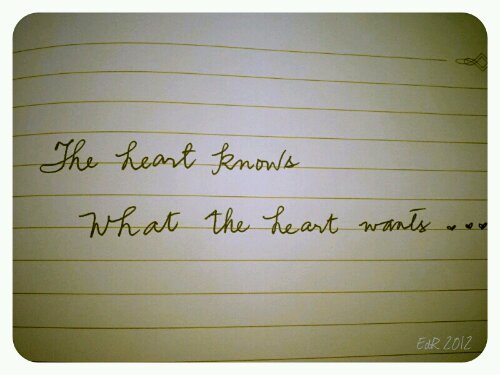 The heart knows
What the heart wants ...
EdR 2012